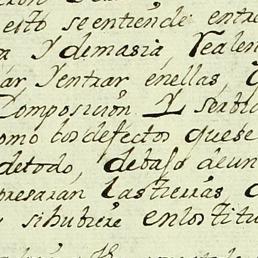 esto se entiende entre
Y demasia realen
ar Yentrar enellas,
Composicion Y se
omo los defectos que se
detodo, debajo de un
presaran las tierras,
si hubiere en los titu